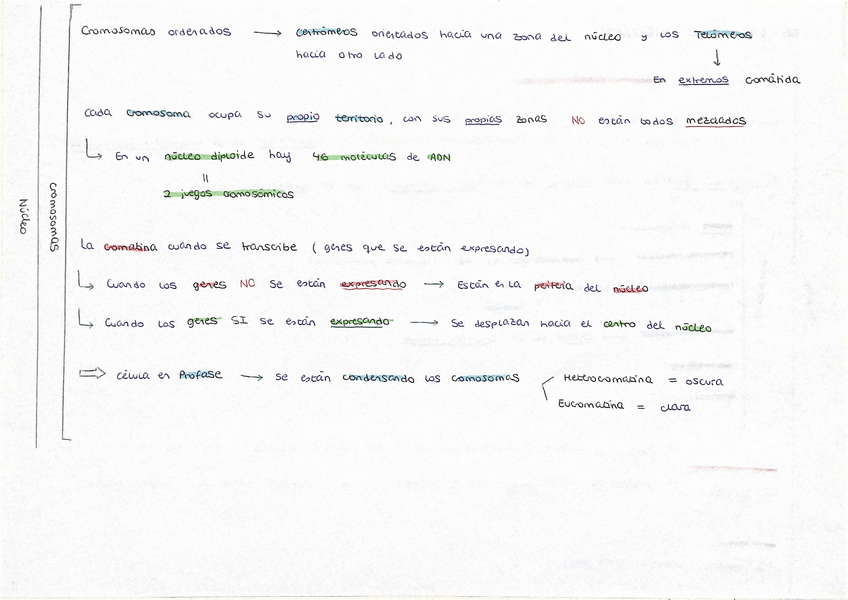 Núcleo
cromosomas
Cromosomas ordenados → centrómeros orientados hacia una zona del núcleo y los Telómeros
hacia otro lado
↓
En extremos cromátida
Cada cromosoma ocupa su propio territorio, con sus propias zonas NO están todos mezclados
↳ En un núcleo diploide hay 46 moléculas de ADN
=
2 juegos cromosómicos
La cromatina cuando se transcribe (genes que se están expresando)
↳ Cuando los genes NO se están expresando → Están en la periferia del núcleo
↳ Cuando los genes SI se están expresando → Se desplazan hacia el centro del núcleo
⇒ célula en Profase → Se están condensando los cromosomas
Heterocromatina = oscura
Eucromatina = clara